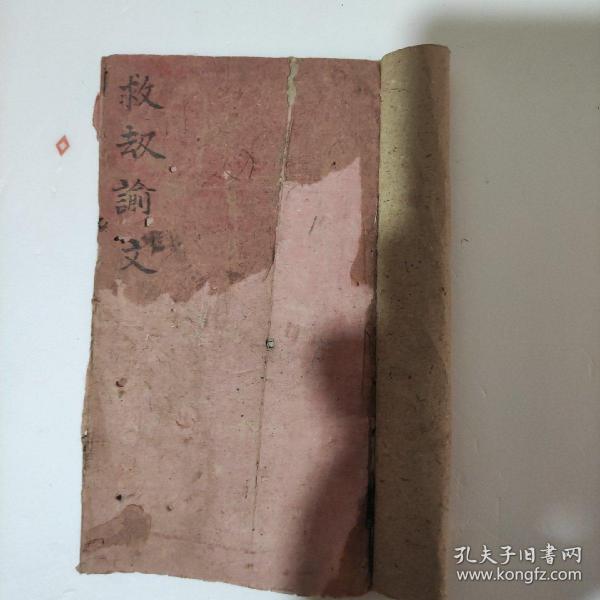 救刼諭文
孔夫子旧书网
www.kongfz.com